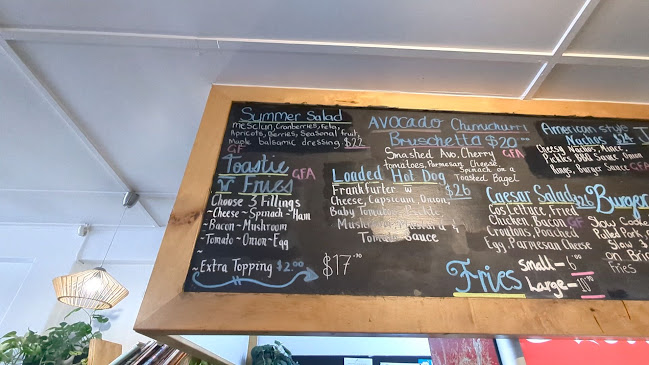 Summer Salad
Mesclun, Cranberries, Feta,
Apricots, Berries, Seasonal Fruit,
Maple balsamic dressing $22
GF
Toastie
w Fries
GFA
Choose 3 Fillings
-Cheese - Spinach - Ham
-Bacon - Mushroom
-Tomato - Onion - Egg
~
~ Extra Topping $2.00
$17.90
AVOCADO Chimichurri
Bruschetta $20
Smashed Avo, Cherry GFA
tomatoes, Parmesan Cheese,
Spinach on a
Toasted Bagel
Loaded Hot Dog
Frankfurter w $26
Cheese, Capsicum, Onion,
Baby Tomatoes, Pickle,
Mushroom, Mustard &
Tomato Sauce
American style
Nachos $24
Cheesy Nachos, Mince,
Pickles BBQ Sauce, Onion
Rings, Burger Sauce GFA
Caesar Salad $26
Cos Lettuce, Fried
Chicken, Bacon GF
Croutons, Poached
Egg, Parmesan Cheese
Burger
Slow Cooked
Pulled Pork
Slaw
on Brio
Fries
Fries
Small -
Large -